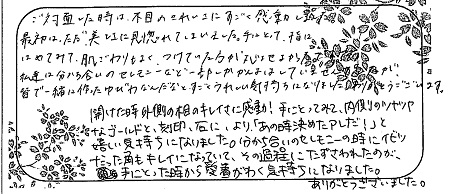 ご対面した時は、木目のきれいさにすごく感動しました。
最初は、ただ美しさに見惚れてしまいました。手にとって、指に
はめてみて、肌ざわりもよく、つけている
私達は分かち合いのセレモニーなど一切
皆で一緒に作ったゆびわなんだなと、すごくうれしい気持ちになりました。ありがとうございます。
開けた時外側の相のキレイさに感動！手にとってみて、内側のツヤツヤ
なゴールドと、刻印、石に、より、「あの時決めたアレだ！」と
嬉しい気持ちになりました。分かち合いのセレモニーの時にイビツ
だった角もキレイになっていて、その過程にたずさわれたのが、
手にとった時から愛着がわく気持ちになりました。
ありがとうございました。